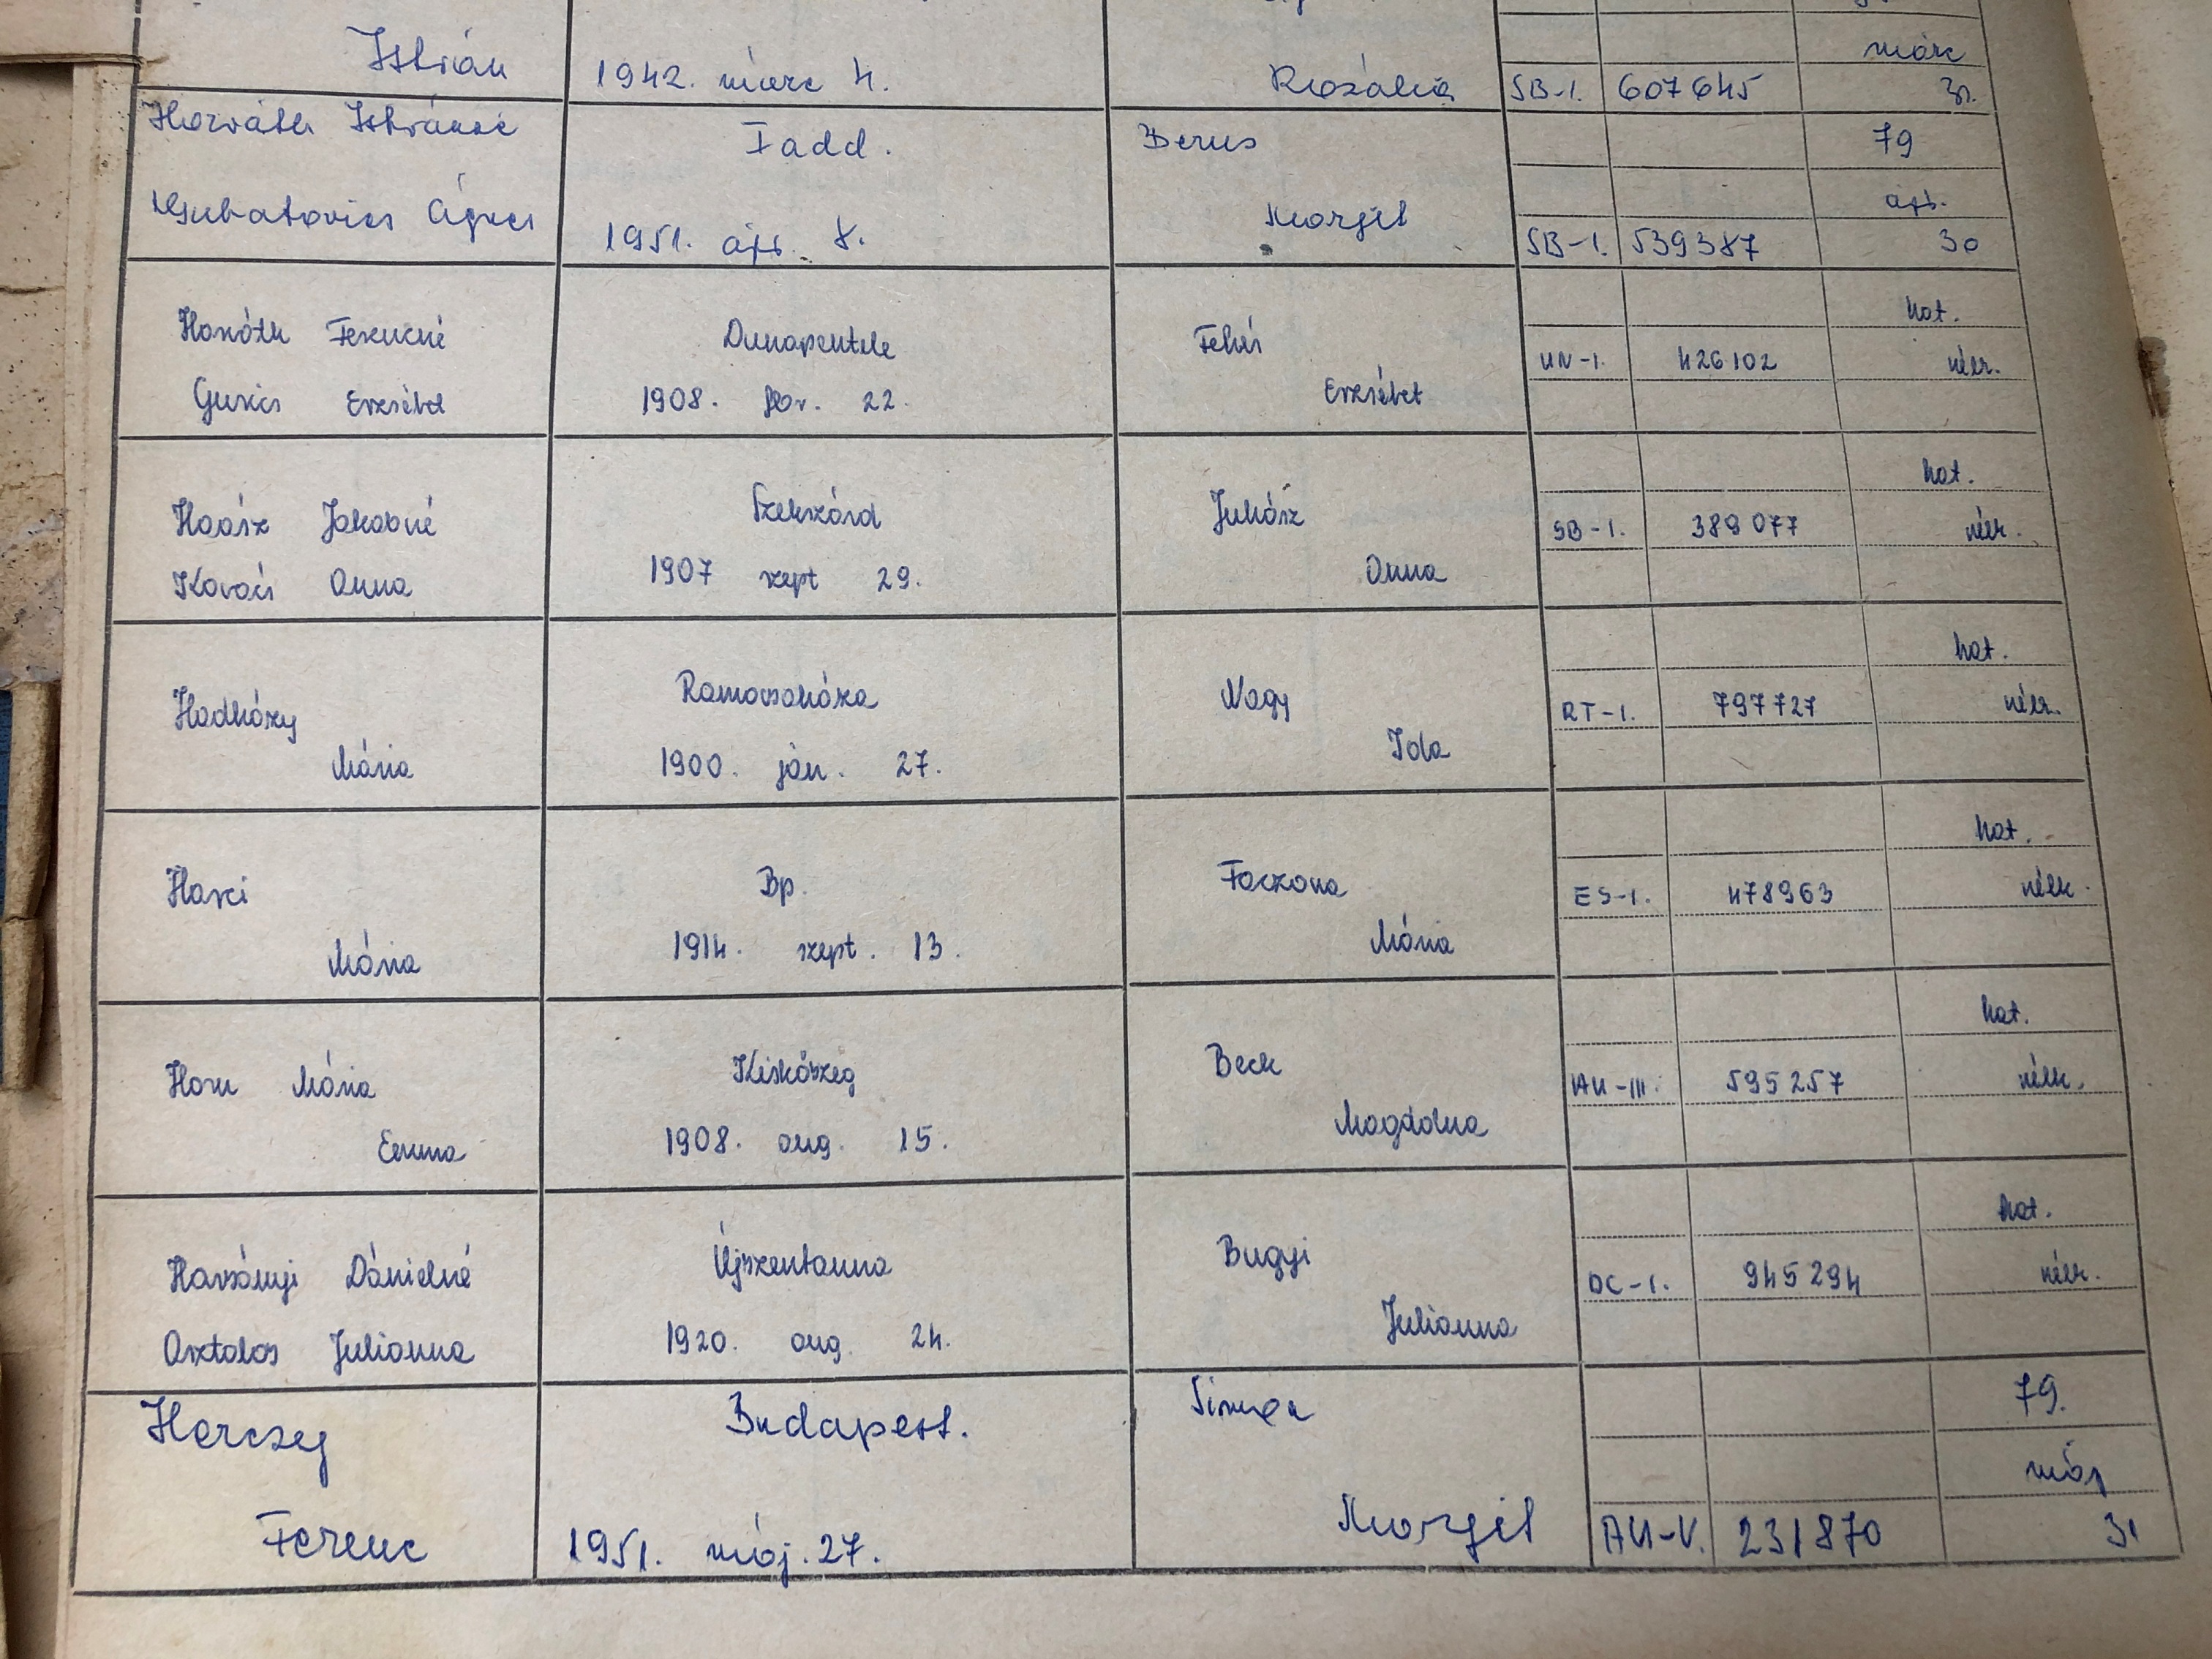 márc
István 1942. márc 4. Rozália SB-I. 607645 31.
Horváth Istvánné Fadd. Berus 79
Gubatovics Ágnes Margit ápr.
1951. ápr. 8. SB-I. 539387 30
hat.
Horóth Ferencné Dunapentele Fehér UN-I. 426102 nélk.
Gurics Erzsébet 1908. febr. 22. Erzsébet
hat.
Haász Jakabné Szekszárd Juhász SB-I. 389077 nélk.
Kovács Anna 1907 szept 29. Anna
hat.
Hadházy Ramocsaháza Nagy RT-I. 797727 nélk.
Mária 1900. ján. 27. Ida
hat.
Harci Bp. Faczona ES-I. 478963 nélk.
Mária 1914. szept. 13. Mária
hat.
Horn Mária Kiskőszeg Beck AU-III. 595257 nélk.
Emma 1908. aug. 15. Magdolna
hat.
Harsányi Dánielné Újszentanna Bugyi DC-I. 945294 nélk.
Asztalos Julianna 1920. aug. 24. Julianna
Herczeg Budapest. 79.
máj
Ferenc 1951. máj. 27. Margit AU-V. 231870 31